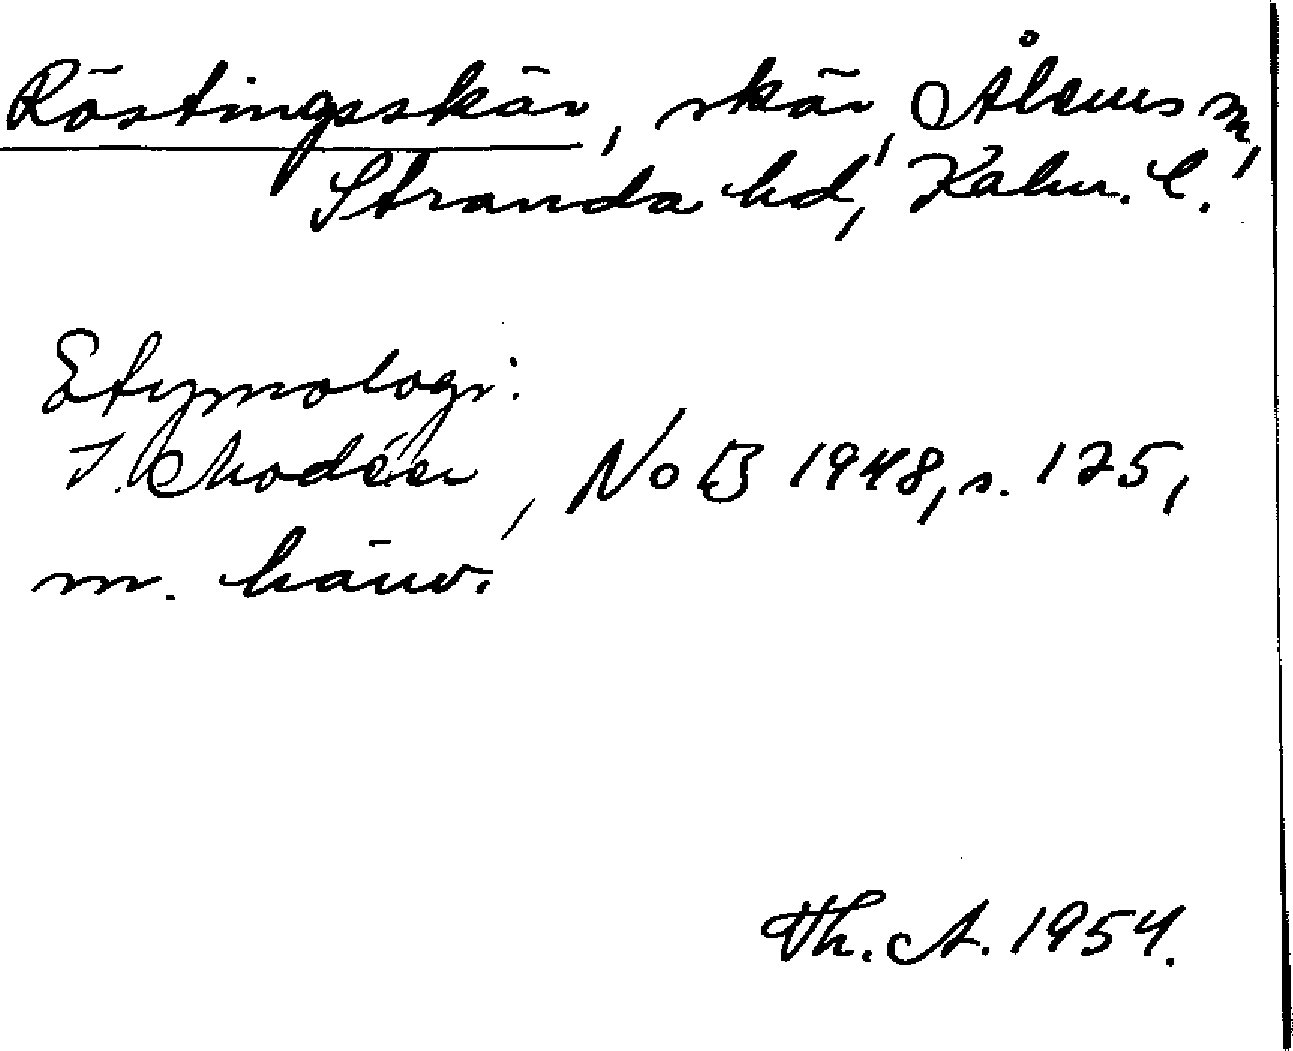 Röstingsskär, skär, Ålems sn,
Stranda hd, Kalm. l.
Etymologi:
I. Modéer, NoB 1948, s. 125,
m. hänv.
Th. A. 1954.